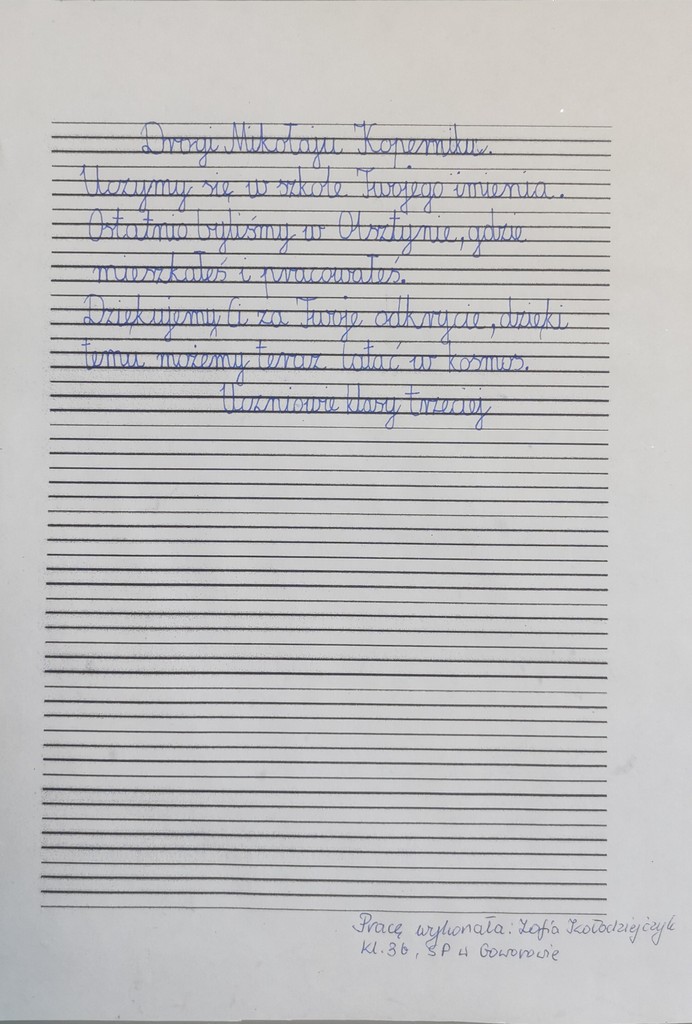 Drogi Mikołaju Koperniku.
Uczymy się w szkole Twojego imienia.
Ostatnio byliśmy w Olsztynie, gdzie
mieszkałeś i pracowałeś.
Dziękujemy Ci za Twoje odkrycie, dzięki
temu możemy teraz latać w kosmos.
Uczniowie klasy trzeciej
Pracę wykonała: Zofia Kołodziejczyk
kl. 3b, SP w Goworowie